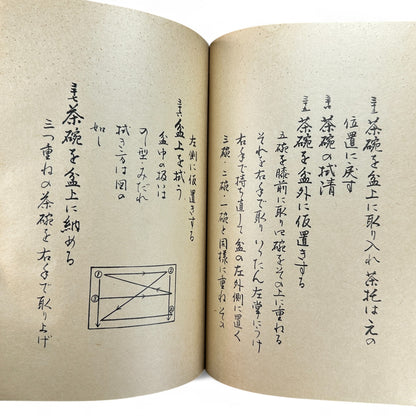 茶碗を盆上に取り入れ茶托は元の
位置に戻す
茶碗の拭清
茶碗を盆外に仮置きする
五碗を膝前に取り四碗をその上に重ねる
それを右手で取りいったん左掌につけ
右手で持ち直して盆の左外側に置く
三碗・二碗・一碗と同様に重ねその
左側に仮置きする
盆上を拭う
盆中の扱いは
のし型・みだれ
拭き方は図の
如し
茶碗を盆上に納める
三つ重ねの茶碗を右手で取り上げ